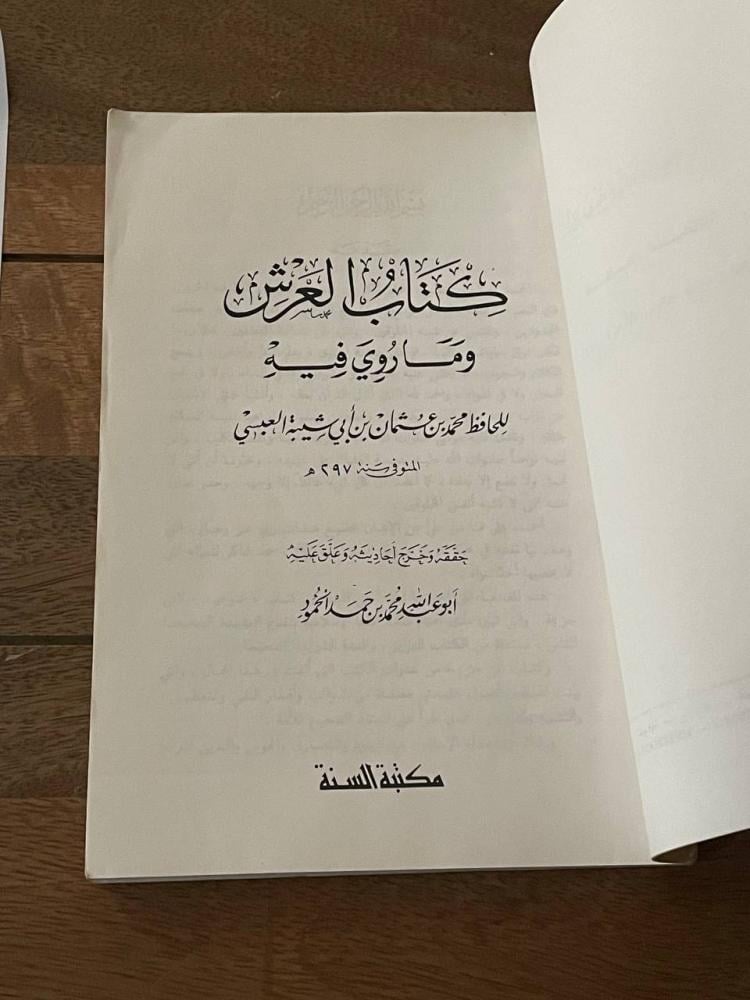 كِتَابُ العَرشِ
وَمَا رُوِيَ فِيهِ
للحافظ محمد بن عثمان بن أبي شيبة العبسي
المتوفى سنة ٢٩٧ هـ
حَقَّقَهُ وَخَرَّجَ أَحَادِيثَهُ وَعَلَّقَ عَلَيْهِ
أبو عبد الله محمد بن حمد الحمود
مكتبة السنة